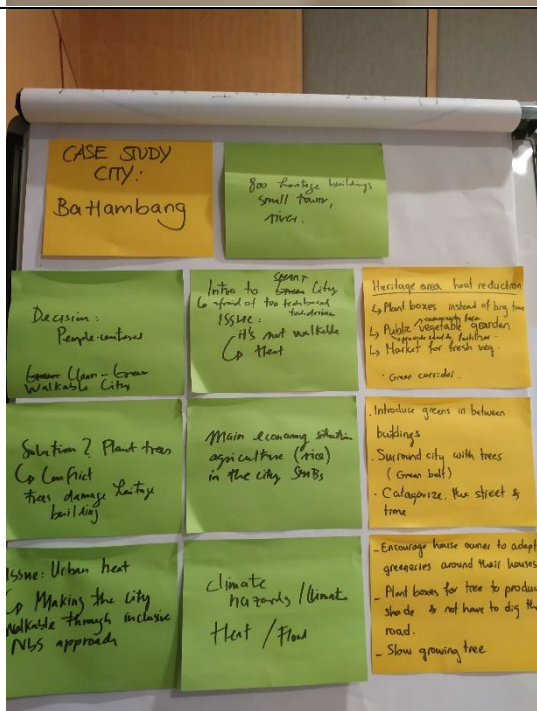 CASE STUDY
CITY:
Battambang
800 heritage buildings
small town,
river.
Decision:
People-centered
Clean-Green
Walkable City
Intro to Green City
SMART
afraid of too
ISSUE:
it's not walkable
↳ Heat
Heritage area heat reduction
↳ Plant boxes instead of big tree
↳ Public vegetable graarden
↳ Market for fresh veg.
· Green corridor.
Solution? Plant trees
↳ Conflict
trees damage heritage
building
Main economy
agriculture (rice)
in the city SMBs
· Introduce greens in between
buildings
· Surround city with trees
(Green belt)
· Catagorize the street &
time
Issue: Urban heat
↳ Making the city
walkable through inclusive
NbS approach
Climate
hazards / Climate
Heat / Flood
- Encourage house owner to adapt
greeneries around their houses
- Plant boxes for tree to produce
shade & not have to dig the
road.
- Slow growing tree